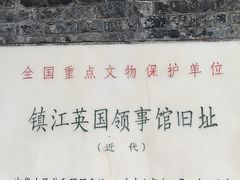 全国重点文物保护单位
镇江英国领事馆旧址
（近代）